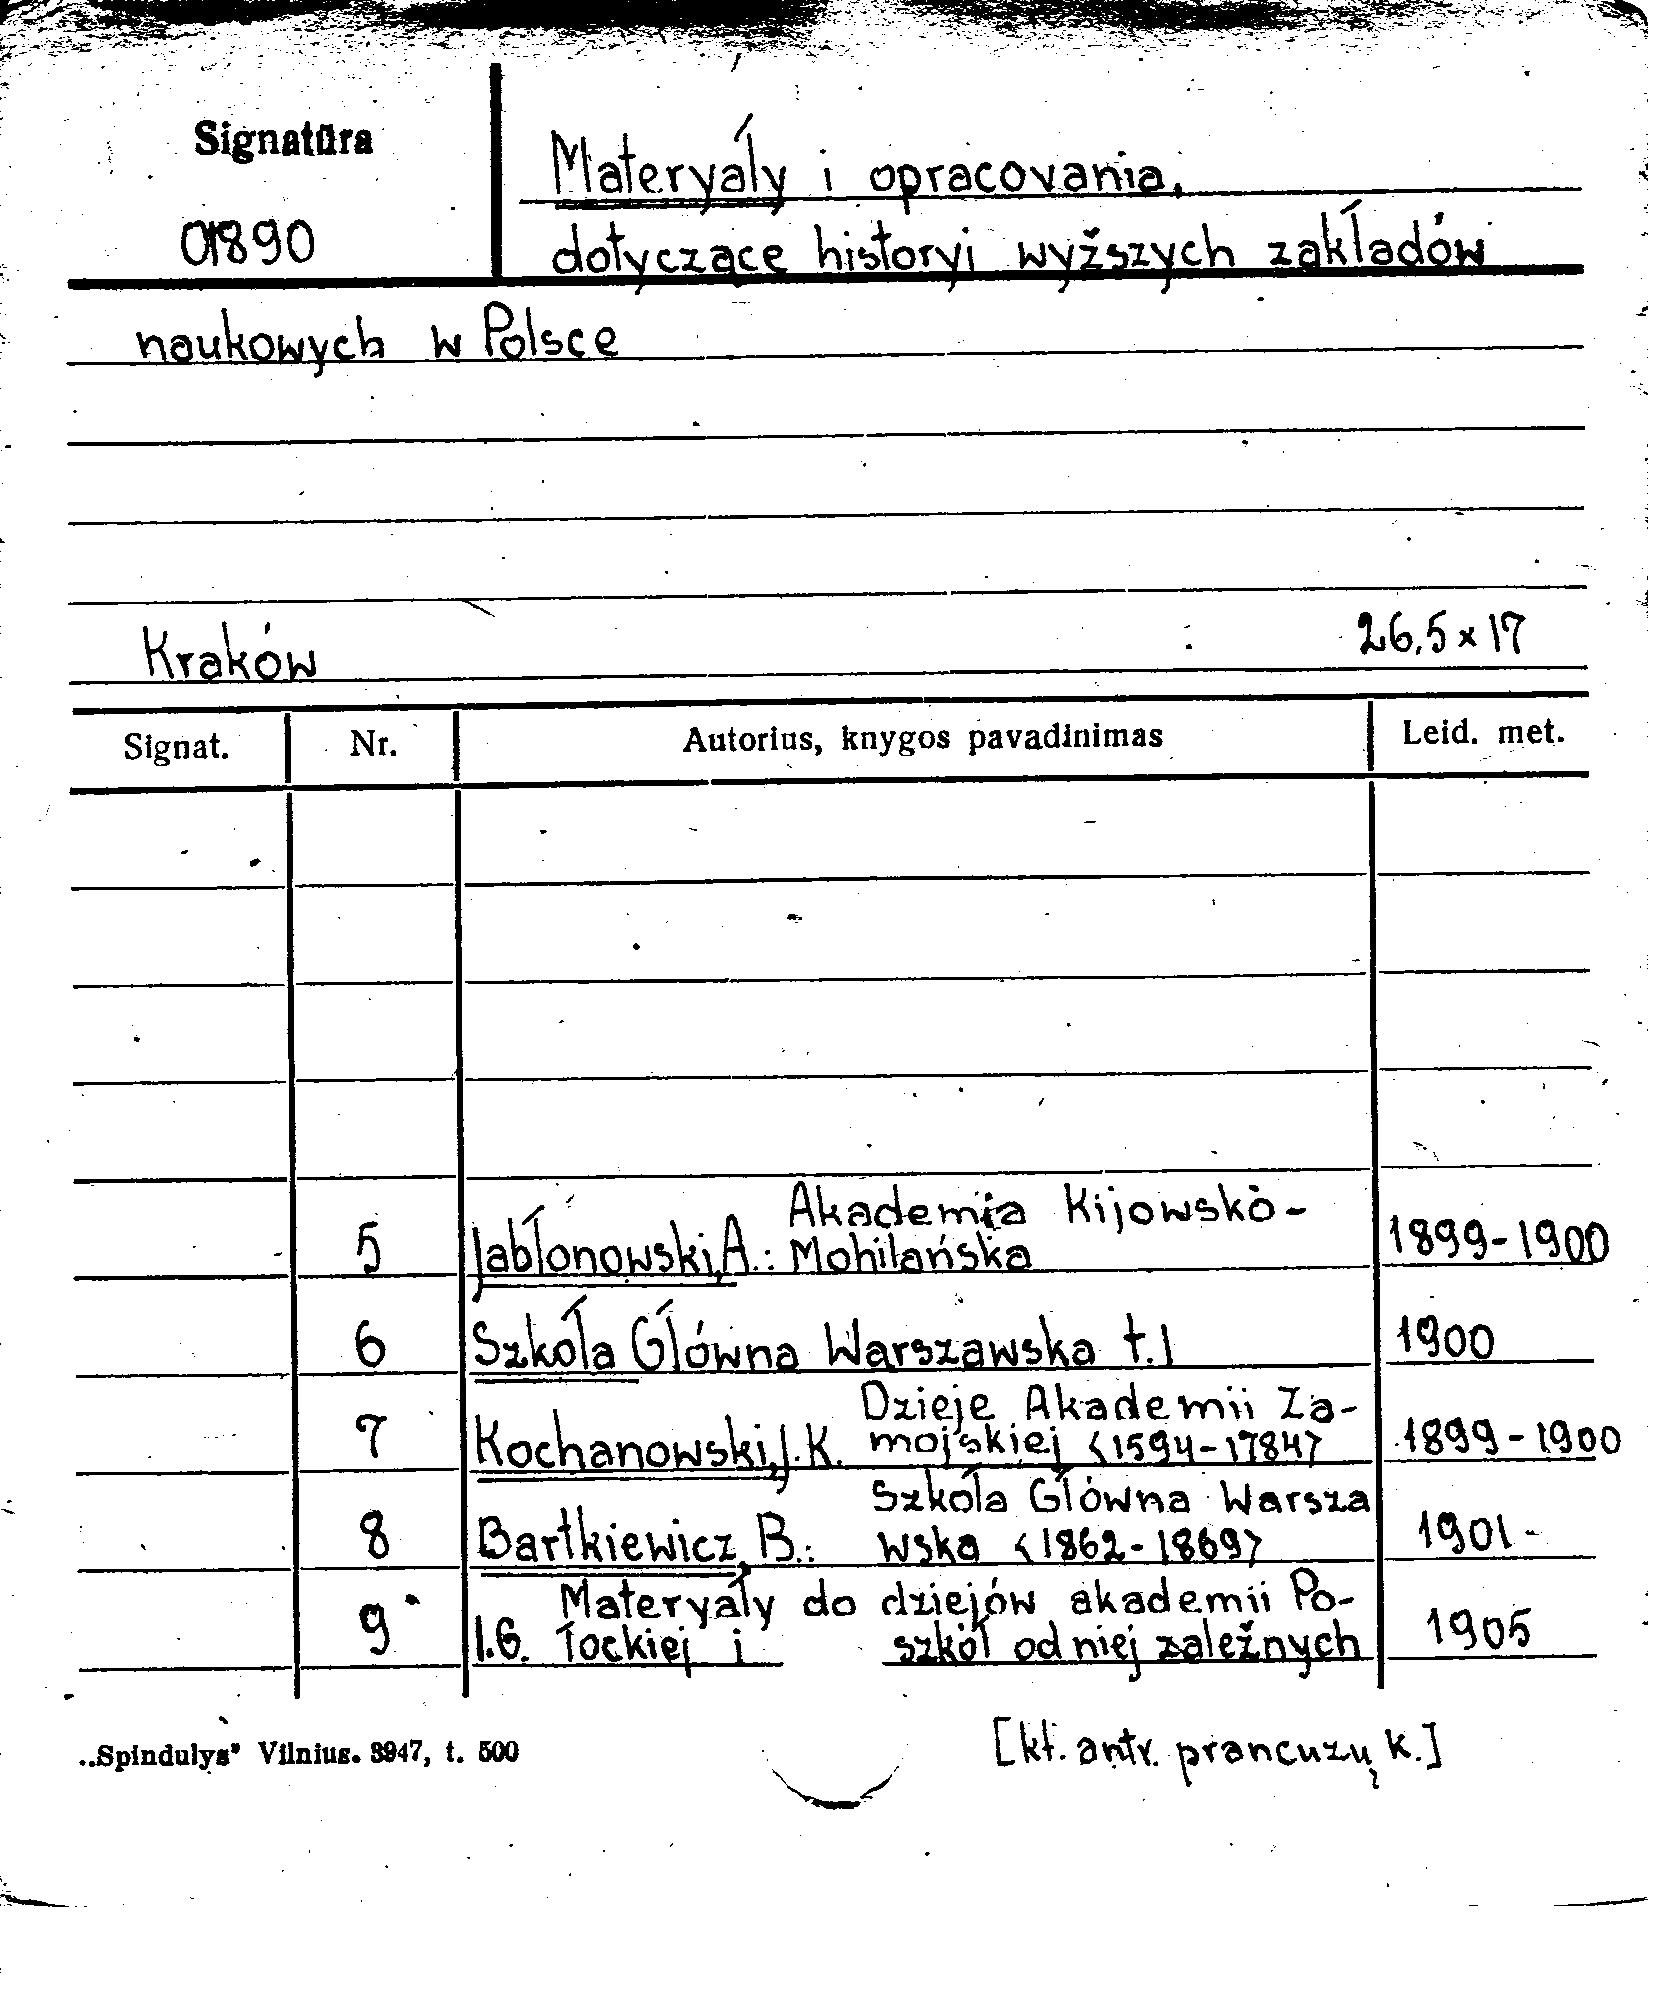 Signatūra
01890
Materyały i opracovania,
dotyczące historyi wyższych zakładów
naukowych w Polsce
Kraków 26,5 × 17
Signat. Nr. Autorius, knygos pavadinimas Leid. met.
5 Jabłonowski, A.: Akademia Kijowsko-
Mohilańska 1899-1900
6 Szkoła Główna Warszawska t. I 1900
7 Kochanowski, J. K. Dzieje Akademii Za-
mojskiej <1594-1784> 1899-1900
8 Bartkiewicz, B.: Szkoła Główna Warsza
wska <1862-1869> 1901-
9 I.G. Materyały do dziejów akademii Po-
łockiej i szkół od niej zależnych 1905
„Spindulys" Vilnius. 3947, t. 500
[kt. antr. prancuzų k.]